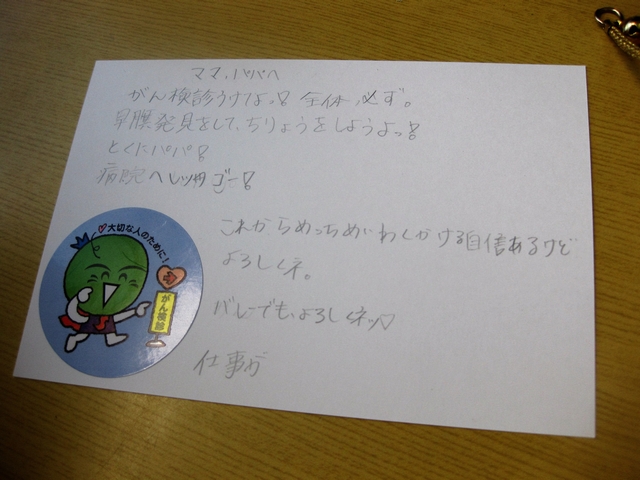 ママ、パパへ
がん検診うけなっ! 全体、必ず。
早膜発見をして、ちりょうをしようよっ!
とくにパパ!
病院へレッツゴー!
これからめっちめいわくかける自信あるけど
よろしくネ。
バレーでも、よろしくネッ♡
仕事が
♡大切な人のために!
がん検診